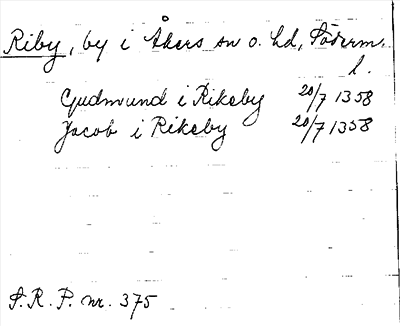 Riby, by i Åkers sn o. hd, Söderm.
l.
Gudmund i Rikeby 20/7 1358
Jacob i Rikeby 20/7 1358
S. R. P. nr. 375